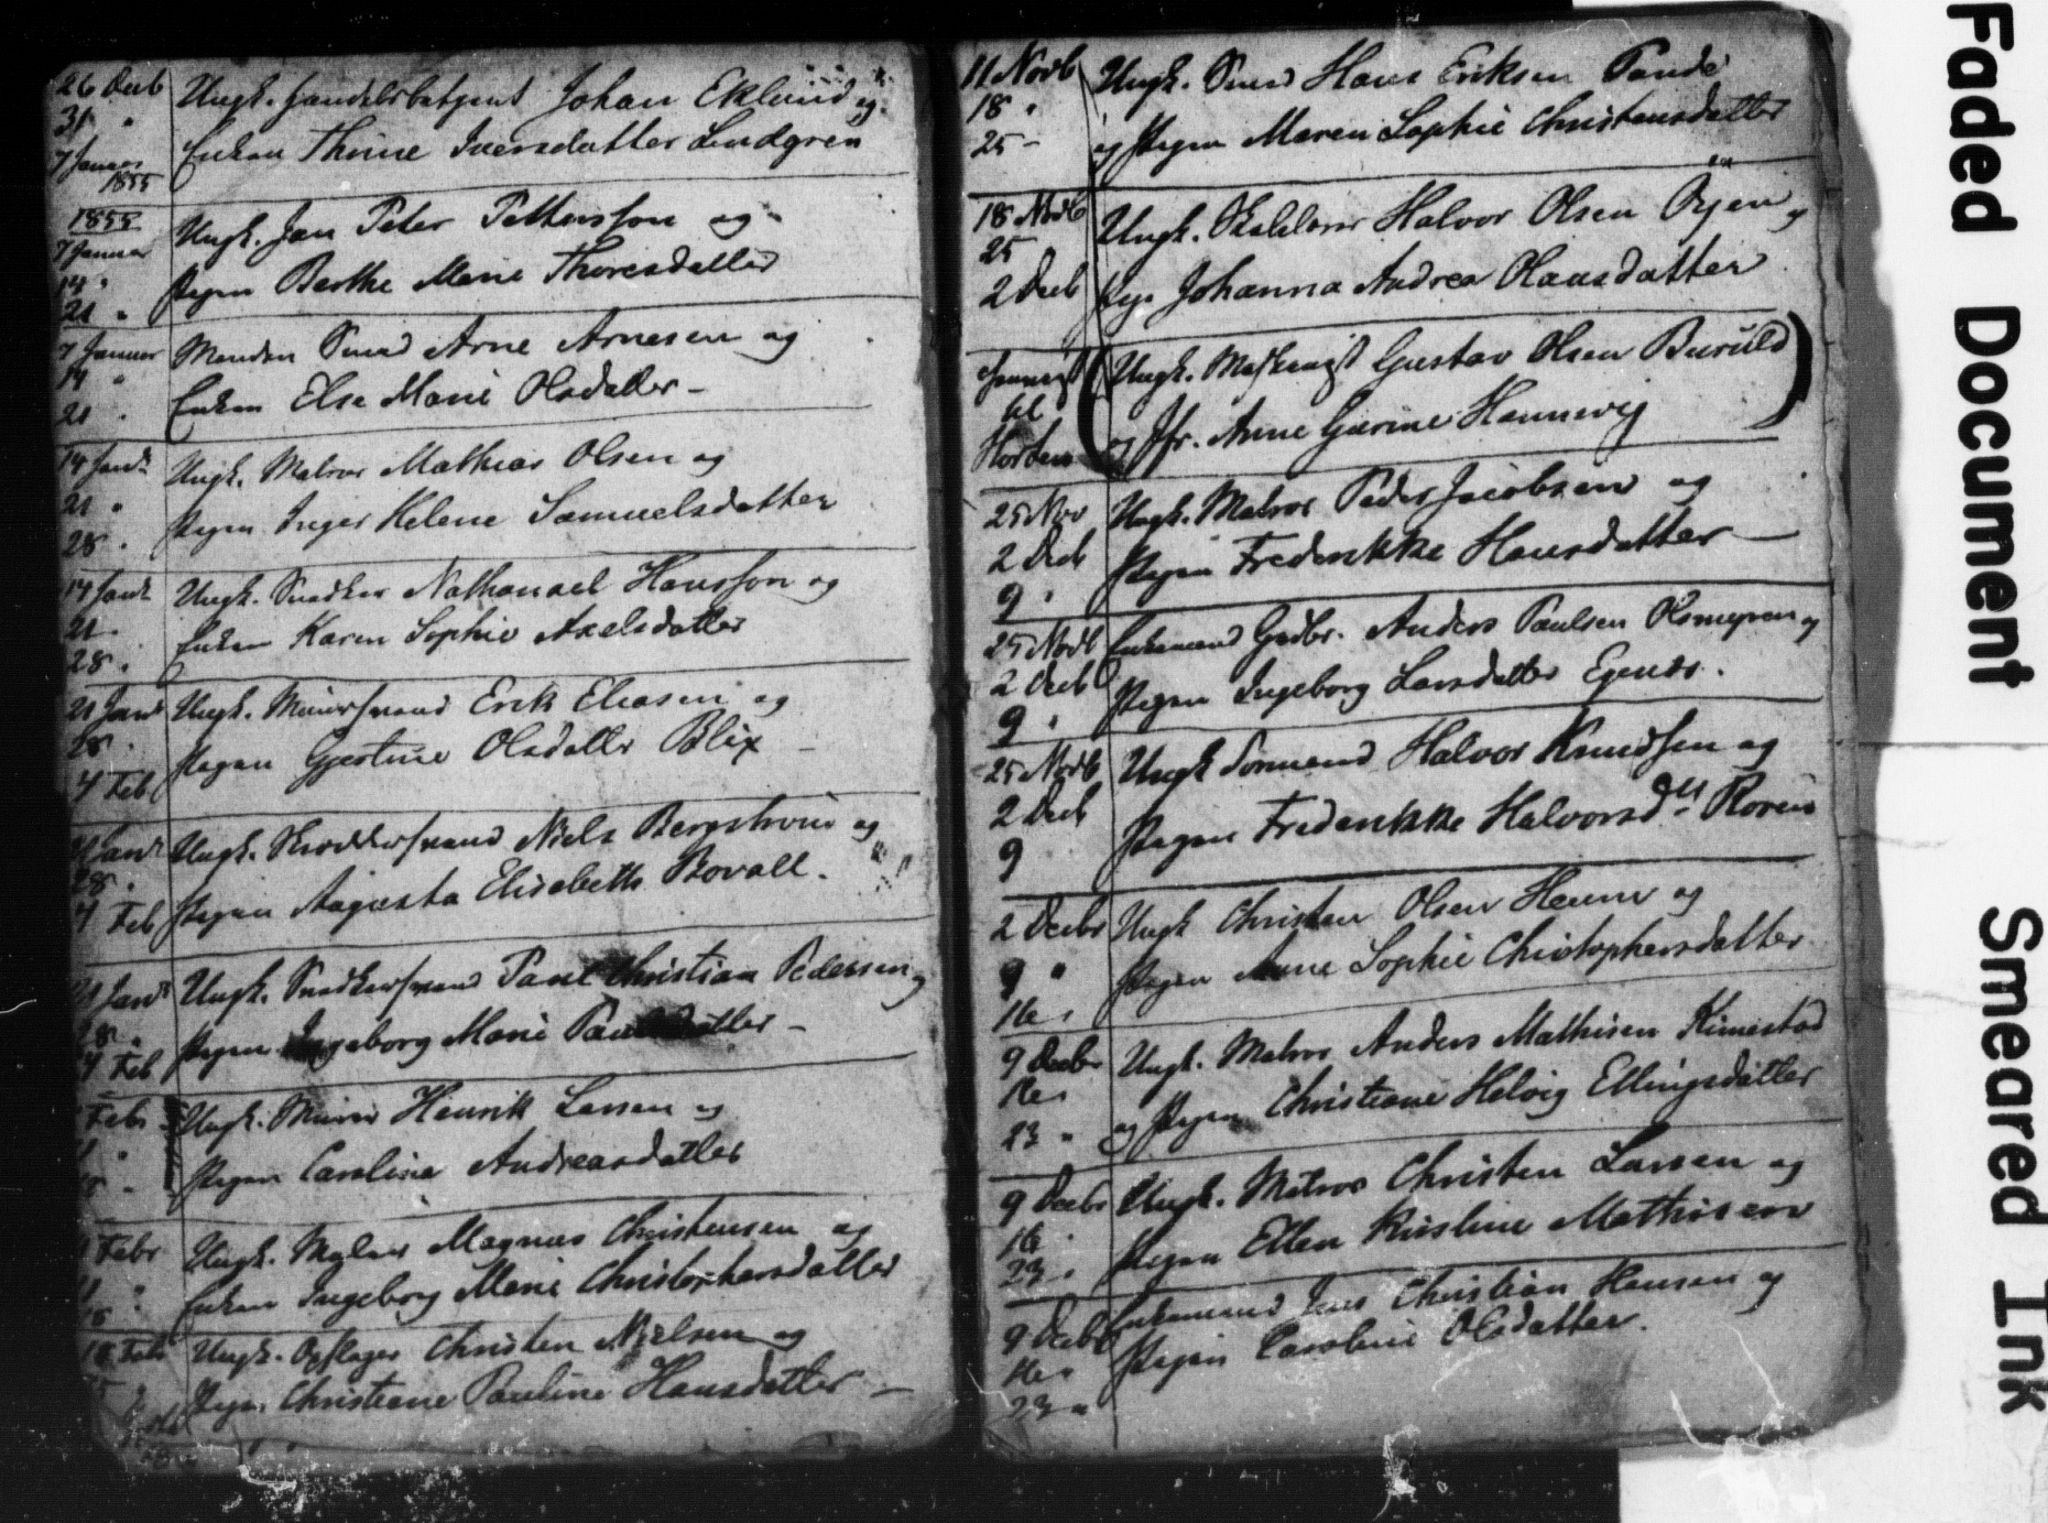 26 Decb Ungk. Handelsbetjent Johan Eklund og
31 "
7 Januar 1855 Enken Thrine Iversdatter Lindgren
1855
7 Januar Ungk. Jan Peter Pettersson og
14 "
21 " Pigen Berthe Marie Thoresdatter
7 Januar Manden Smed Arne Arnesen og
14 "
21 . Enken Else Marie Olsdatter –
14 Janr Ungk. Matros Mathias Olsen og
21 "
28 . Pigen Inger Helene Samuelsdatter
14 Janr Ungk. Snedker Nathanael Hansson og
21 .
28 . Enken Karen Sophie Axelsdatter
21 Janr Ungk. Muursvend Erik Eliasen og
28 .
4 Feb Pigen Gjertine Olsdattr Blix –
21 Janr Ungk. Skreddersvend Niels Bergstrøm og
28 .
4 Feb Pigen Augusta Elisabeth Bovall.
21 Janr Ungk. Snedkersvend Paul Christian Pedersen og
28 .
4 Feb Pigen Ingeborg Marie Paulsdatter –
Febr Ungk. Murer Henrik Larsen og
Pigen Caroline Andreasdatter
Febr Ungk. Magnus Christensen og
11 "
18 Enken Ingeborg Marie Christophersdatter
18 Febr Ungk. Opflager Christen Nielsen og
25
Pigen Christiane Pauline Hansdatter –
11 Novb Ungk. Smed Hans Eriksen Rande
18 .
25 – og Pigen Maren Sophie Christensdatter
18 Novb Ungk. Halvor Olsen Ørjen og
25
2 Decb Pige Johanna Andrea Olausdatter
til Ungk. Gustav Olsen Buruld
Horten og Jfr. Anne Gurine Hannevig
25 Nov Ungk. Matros Peder Jacobsen og
2 Decb
9 . Pigen Frederikke Hansdatter –
25 Novb Enkemand Gdbr. Anders Paulsen og
2 Decb
9 . Pigen Ingeborg Larsdatter
25 Novb Ungk Sømand Halvor Knudsen og
2 Decb
9 Pigen Frederikke Halvorsdtr Roren
2 Decbr Ungk Christen Olsen Heum og
9 "
16 . Pigen Anne Sophie Christophersdatter
9 Decbr Ungk. Matros Anders Mathisen Kimestad
16 .
23 . og Pigen Christiane Helvig Ellingsdatter
9 Decbr Ungk. Matros Christen Larsen og
16 .
23 . Pigen Ellen Kristine Mathisen
9 Decb Enkemand Jens Christian Hansen og
16 .
23 " Pigen Caroline Olsdatter.
Faded Document
Smeared Ink